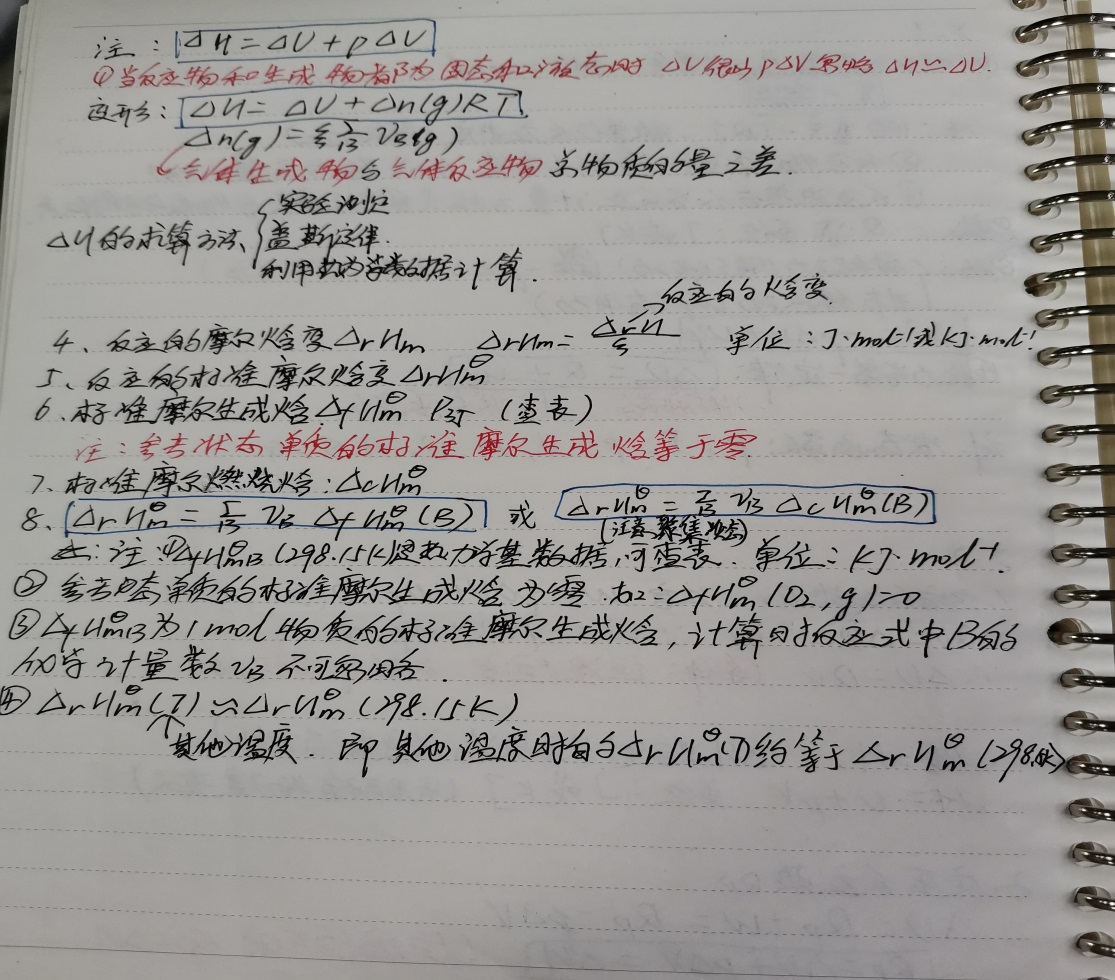 注：ΔH=ΔU+pΔV
①当反应物和生成物都为固态和液态时 ΔV很小 pΔV忽略 ΔH≈ΔU.
变形：ΔH=ΔU+Δn(g)RT.
Δn(g)=ξ∑B νB(g)
气体生成物与气体反应物的物质的量之差.
实验测定
ΔH的求算方法 盖斯定律.
利用热力学数据计算.
反应的焓变
4、反应的摩尔焓变ΔrHm ΔrHm=ΔrH/ξ 单位：J·mol⁻¹或KJ·mol⁻¹
5、反应的标准摩尔焓变ΔrHm^θ
6、标准摩尔生成焓ΔfHm^θ P37 (查表)
注：参考状态单质的标准摩尔生成焓等于零
7、标准摩尔燃烧焓：ΔcHm^θ
8、ΔrHm^θ=∑B νB ΔfHm^θ(B) 或 ΔrHm^θ=∑B νB ΔcHm^θ(B)
(注意聚集状态)
注：①ΔfHm^θB(298.15K)是热力学基本数据，可查表.单位：KJ·mol⁻¹.
②参考状态单质的标准摩尔生成焓为零 ΔfHm^θ(O2,g)=0
③ΔfHm^θB为1mol物质的标准摩尔生成焓，计算时反应式中B的
化学计量数νB不可忽略.
④ΔrHm^θ(T)≈ΔrHm^θ(298.15K)
其他温度.即其他温度时的ΔrHm^θ(T)约等于ΔrHm^θ(298.15K)